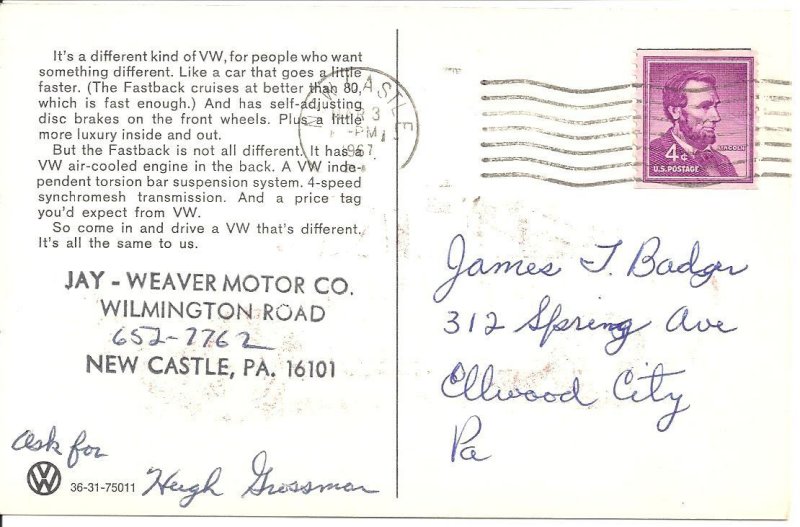 It's a different kind of VW, for people who want
something different. Like a car that goes a little
faster. (The Fastback cruises at better than 80,
which is fast enough.) And has self-adjusting
disc brakes on the front wheels. Plus a little
more luxury inside and out.
But the Fastback is not all different. It has a
VW air-cooled engine in the back. A VW inde-
pendent torsion bar suspension system. 4-speed
synchromesh transmission. And a price tag
you'd expect from VW.
So come in and drive a VW that's different.
It's all the same to us.
JAY - WEAVER MOTOR CO.
WILMINGTON ROAD
652-7762
NEW CASTLE, PA. 16101
Ask for
Hugh Grossman
VW
36-31-75011
NEW CASTLE
PM
1967
4¢
LINCOLN
U.S. POSTAGE
James T. Badger
312 Spring Ave
Ellwood City
Pa